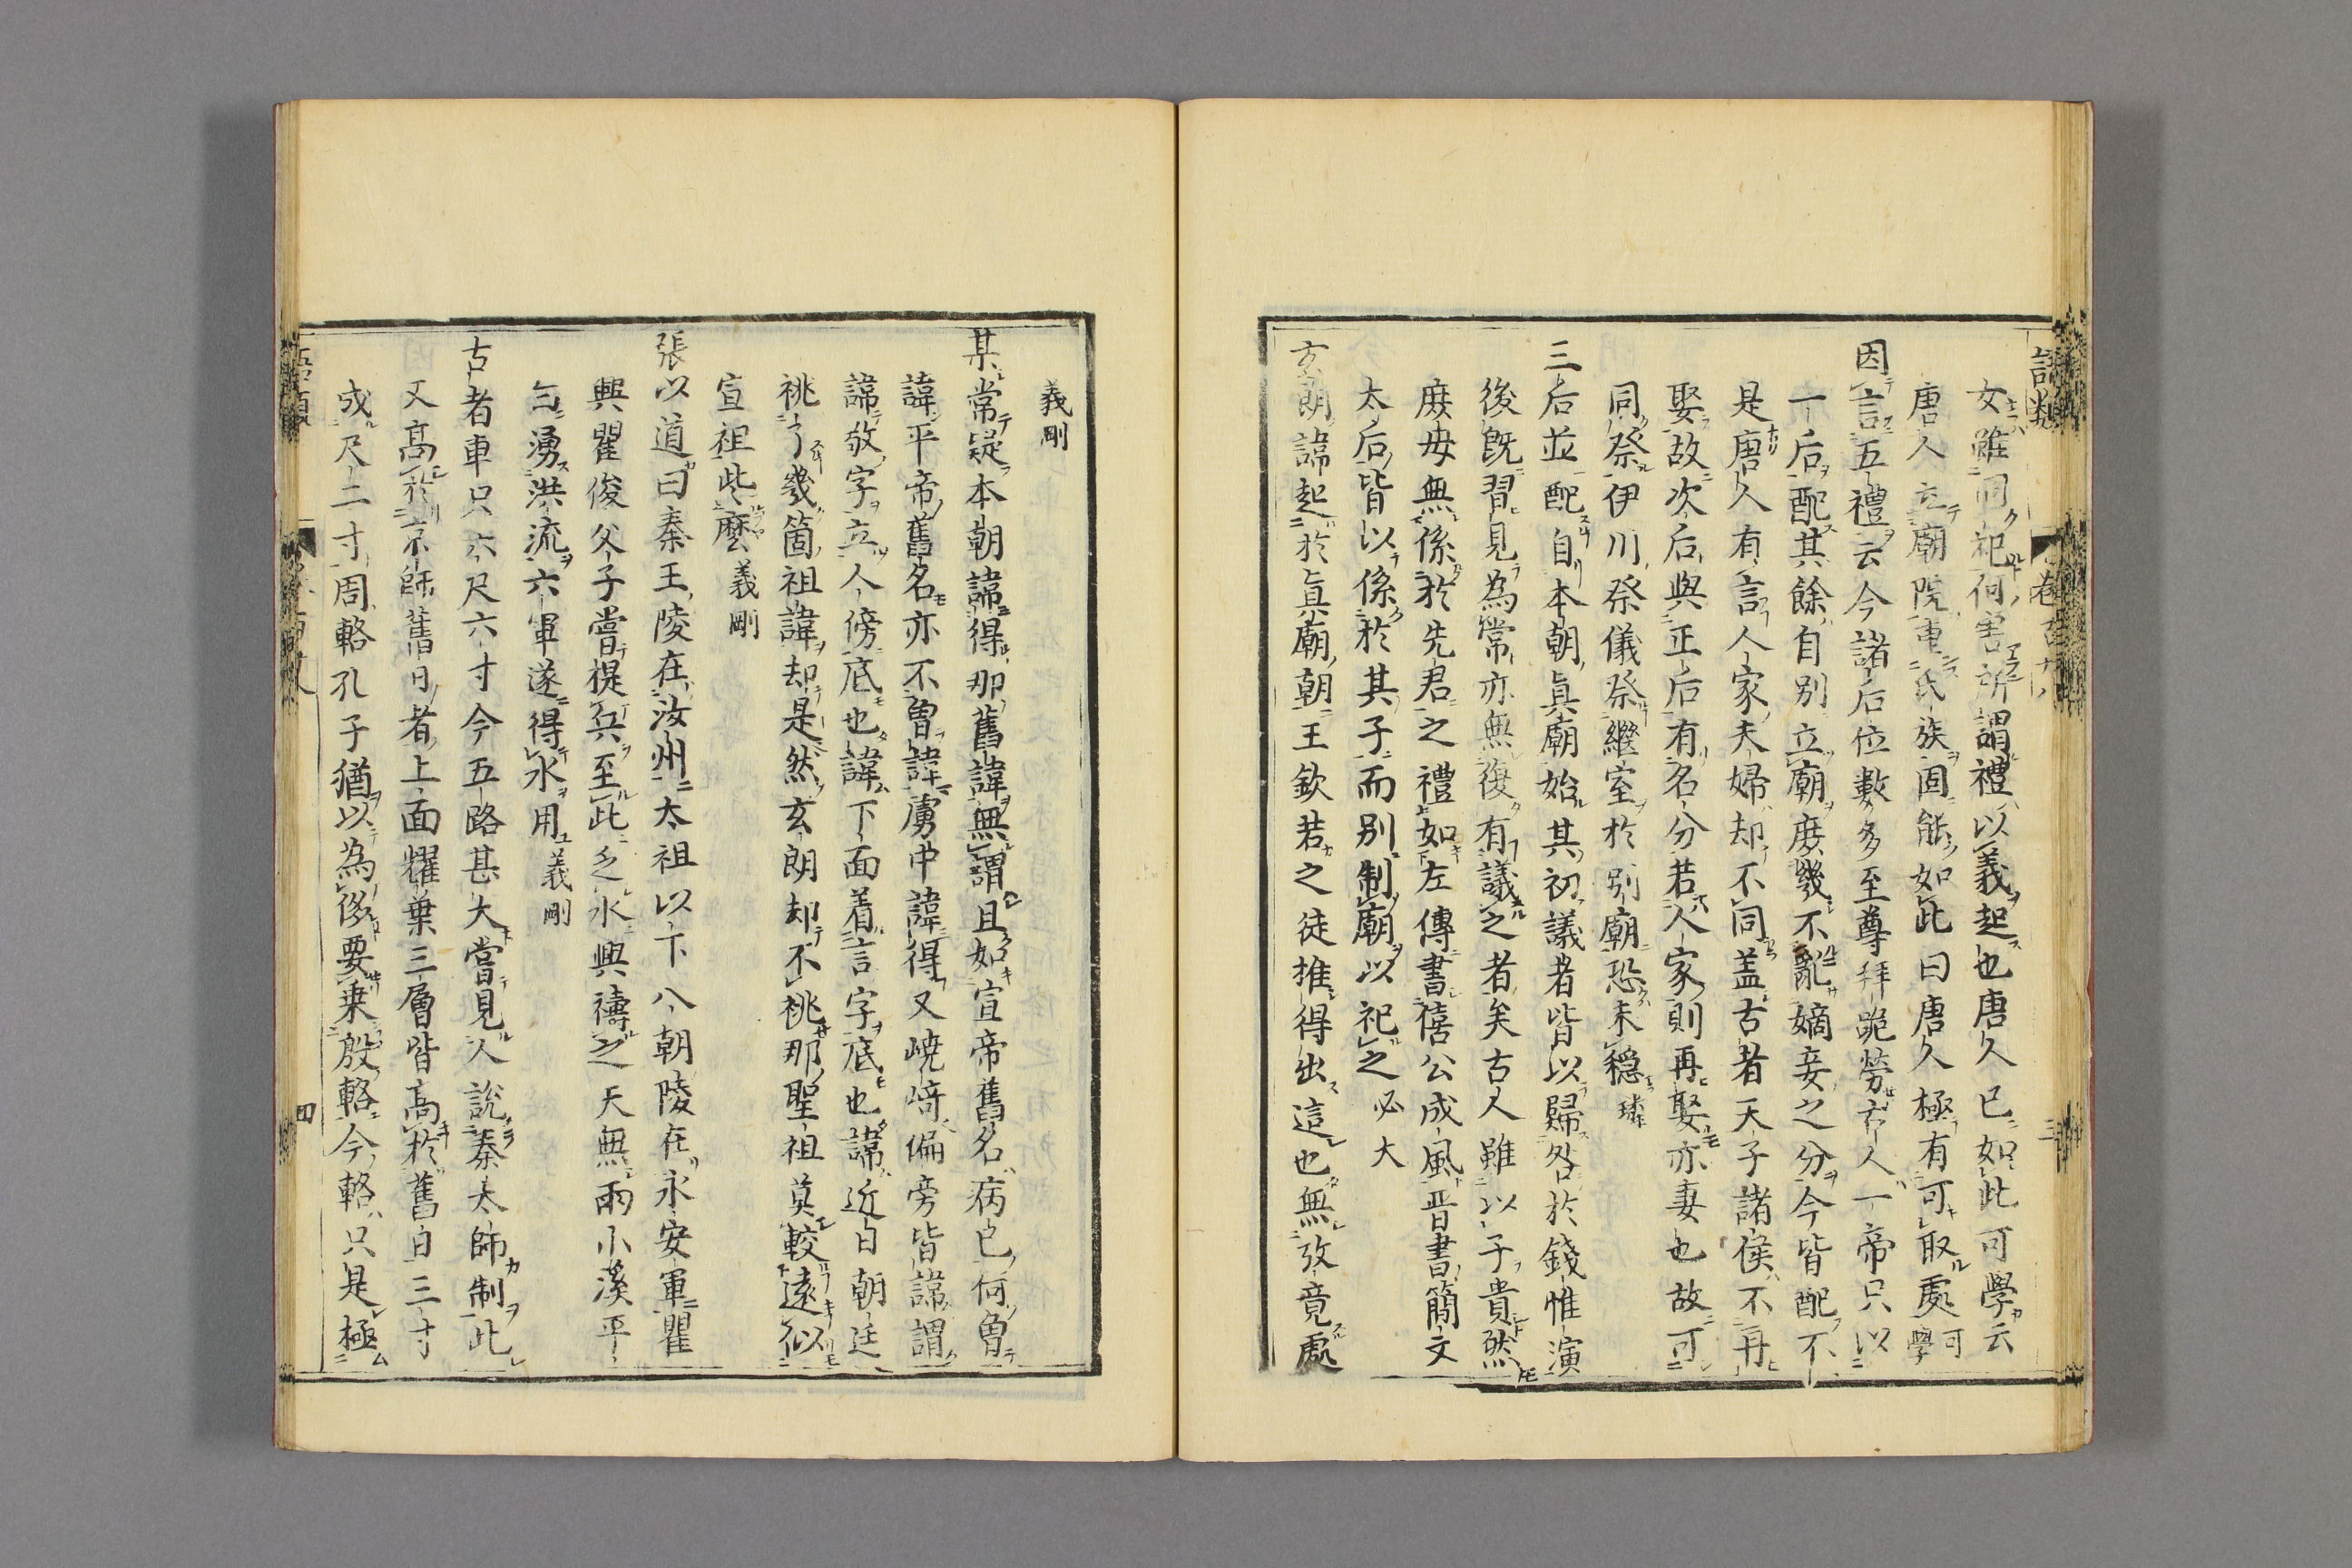 語類
卷百廿八
三
女雖同祀何害所謂禮以義起也唐人已如此可學云
唐人立廟院重氏族固能如此曰唐人極有可取處可學
因言五禮云今諸后位數多至尊拜跪勞古人一帝只以
一后配其餘自別立廟庻幾不亂嫡妾之分今皆配不
是唐人有言人家夫婦却不同盖古者天子諸侯不再
娶故次后與正后有名分若人家則再娶亦妻也故可
同祭伊川祭儀祭繼室於別廟恐未穩 璘
三后並配自本朝眞廟始其初議者皆以歸咎於錢惟演
後既習見為常亦無復有議之者矣古人雖以子貴然
庻母無係於先君之禮如左傳書僖公成風晋書簡文
太后皆以係於其子而別制廟以祀之 必大
玄朗諱起於眞廟朝王欽若之徒推得出這也無攷竟處
義剛
某常疑本朝諱得那舊諱無謂且如宣帝舊名病已何曽
諱平帝舊名亦不曽諱虜中諱得又嶢崎偏旁皆諱謂
諱敬字立人傍底也諱下面着言字底也諱近日朝廷
祧了幾箇祖諱却是然玄朗却不祧那聖祖莫較遠似
宣祖些麼 義剛
張以道曰秦王陵在汝州太祖以下八朝陵在永安軍瞿
興瞿俊父子嘗提兵至此乏水興禱之天無雨小溪平
白湧洪流六軍遂得水用 義剛
古者車只六尺六寸今五路甚大嘗見人說秦太師制此
又高於京師舊日者上面耀葉三層皆高於舊日三寸
成尺二寸周輅孔子猶以為侈要乗殷輅今輅只是極
語類
四